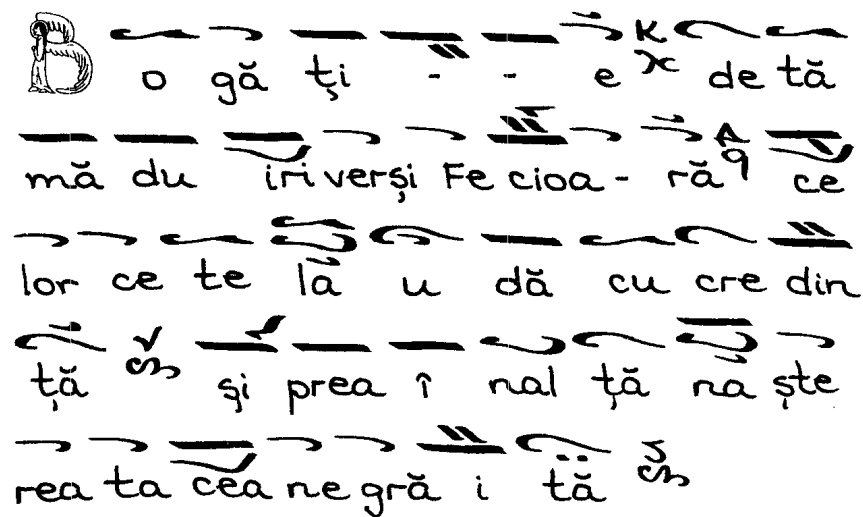 B o gă ţi - - e de tă
mă du iri verşi Fe cioa - ră ce
lor ce te la u dă cu cre din
ţă şi prea î nal ţă na şte
rea ta cea ne gră i tă